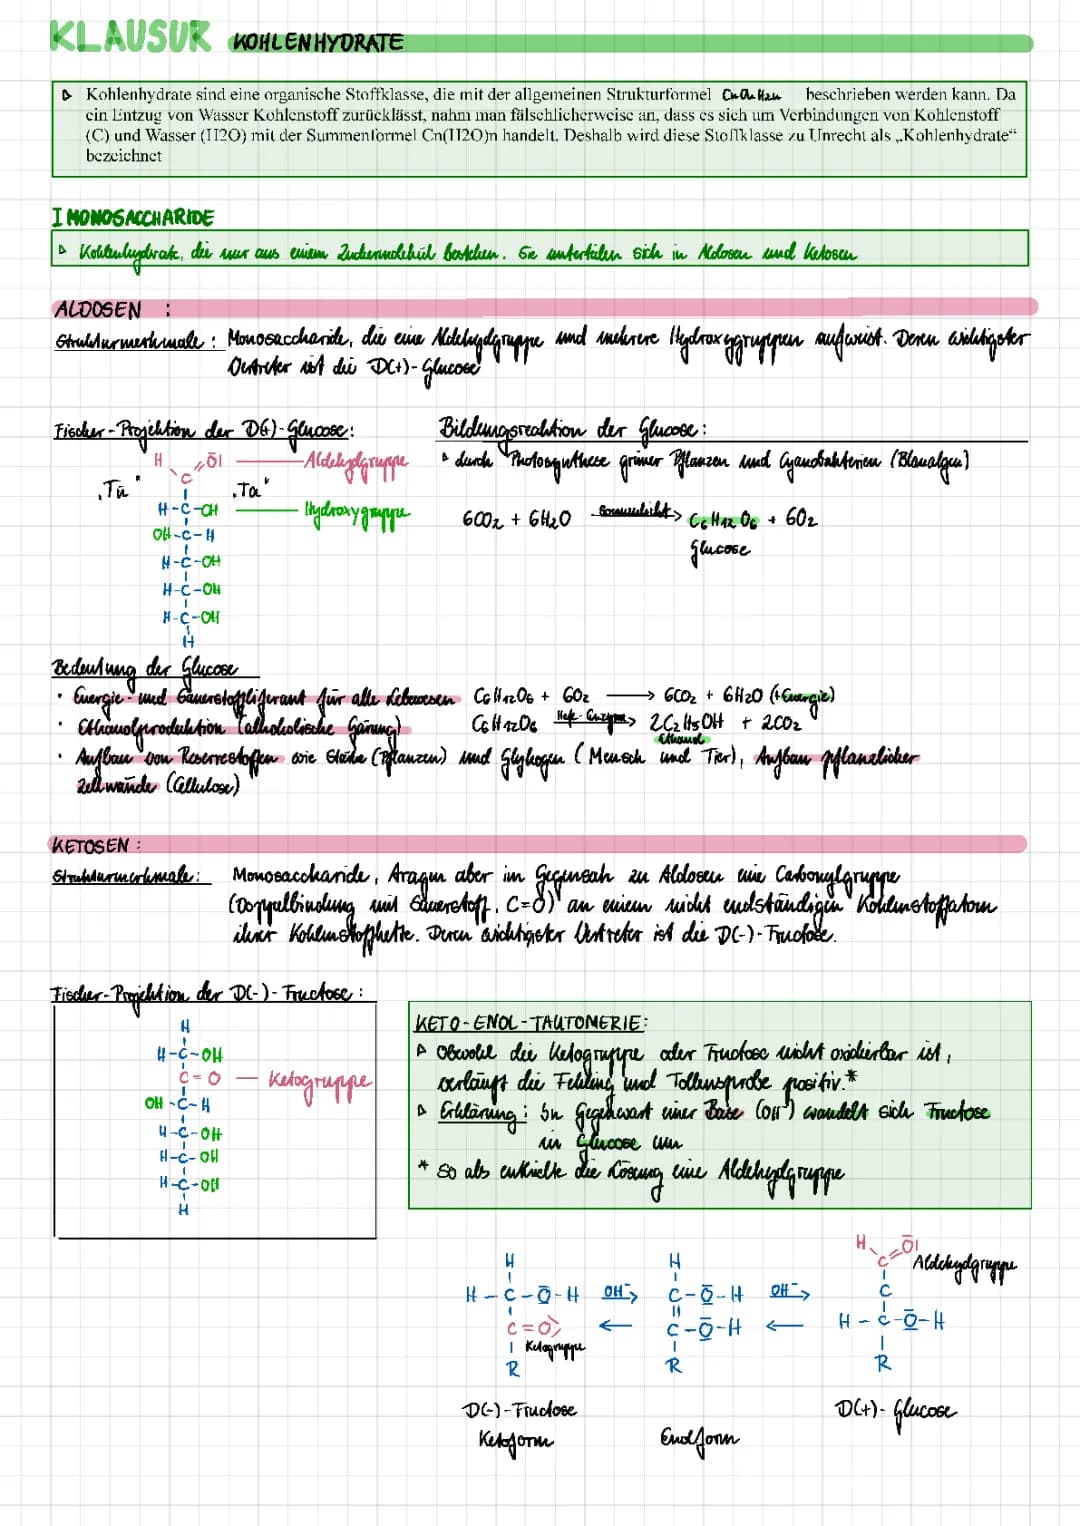 KLAUSUR KOHLENHYDRATE
▷ Kohlenhydrate sind eine organische Stoffklasse, die mit der allgemeinen Strukturformel CnOnH2n beschrieben werden kann. Da
ein Entzug von Wasser Kohlenstoff zurücklässt, nahm man fälschlicherweise an, dass es sich um Verbindungen von Kohlenstoff
(C) und Wasser (H2O) mit der Summenformel Cn(H2O)n handelt. Deshalb wird diese Stoffklasse zu Unrecht als „Kohlenhydrate“
bezeichnet
I MONOSACCHARIDE
▷ Kohlenhydrate, die nur aus einem Zuckermolekül bestehen. Sie unterteilen sich in Aldosen und Ketosen
ALDOSEN :
Strukturmerkmale : Monosaccharide, die eine Aldehydgruppe und mehrere Hydroxygruppen aufweist. Deren wichtigster
Vertreter ist die D(+)-Glucose
Fischer-Projektion der D(+)-Glucose:
H O
C
Aldehydgruppe
„Tü" „Ta"
H-C-OH Hydroxygruppe
OH-C-H
H-C-OH
H-C-OH
H-C-OH
H
Bildungsreaktion der Glucose:
▷ durch Photosynthese grüner Pflanzen und Cyanobakterien (Blaualgen)
6CO2 + 6H2O Sonnenlicht> C6H12O6 + 6O2
Glucose
Bedeutung der Glucose
• Energie- und Sauerstofflieferant für alle Lebewesen C6H12O6 + 6O2 → 6CO2 + 6H2O (+Energie)
• Ethanolproduktion (alkoholische Gärung) C6H12O6 Hefe-Enzyme> 2C2H5OH + 2CO2
Ethanol
• Aufbau von Reservestoffen wie Stärke (Pflanzen) und Glykogen (Mensch und Tier), Aufbau pflanzlicher
Zellwände (Cellulose)
KETOSEN :
Strukturmerkmale: Monosaccharide, tragen aber im Gegensatz zu Aldosen eine Carbonylgruppe
(Doppelbindung mit Sauerstoff, C=O) an einem nicht endständigen Kohlenstoffatom
ihrer Kohlenstoffkette. Deren wichtigster Vertreter ist die D(-)-Fructose.
Fischer-Projektion der D(-)-Fructose :
H
H-C-OH
C=O — Ketogruppe
OH-C-H
H-C-OH
H-C-OH
H-C-OH
H
KETO-ENOL-TAUTOMERIE:
▷ Obwohl die Ketogruppe oder Fructose nicht oxidierbar ist,
verläuft die Fehling und Tollensprobe positiv.*
▷ Erklärung: In Gegenwart einer Base (OH⁻) wandelt sich Fructose
in Glucose um
* so als enthielte die Lösung eine Aldehydgruppe
H
H-C-O-H
C=O
Ketogruppe
R
D(-)-Fructose
Ketoform
OH⁻>
←
H
C-O-H
C-O-H
R
Enolform
OH⁻>
←
H O
C
Aldehydgruppe
C
H-C-O-H
R
D(+)-Glucose